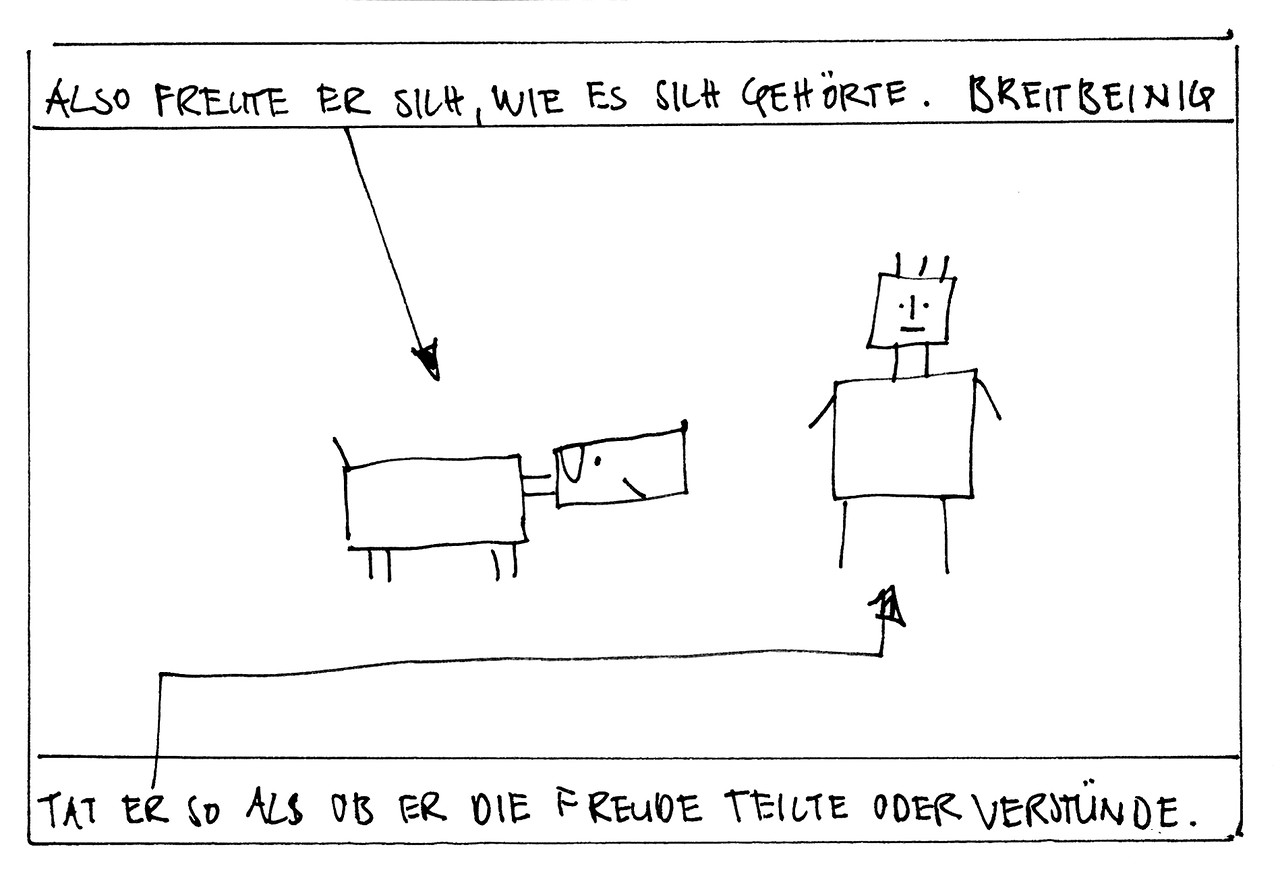 ALSO FREUTE ER SICH, WIE ES SICH GEHÖRTE. BREITBEINIG
TAT ER SO ALS OB ER DIE FREUDE TEILTE ODER VERSTÜNDE.